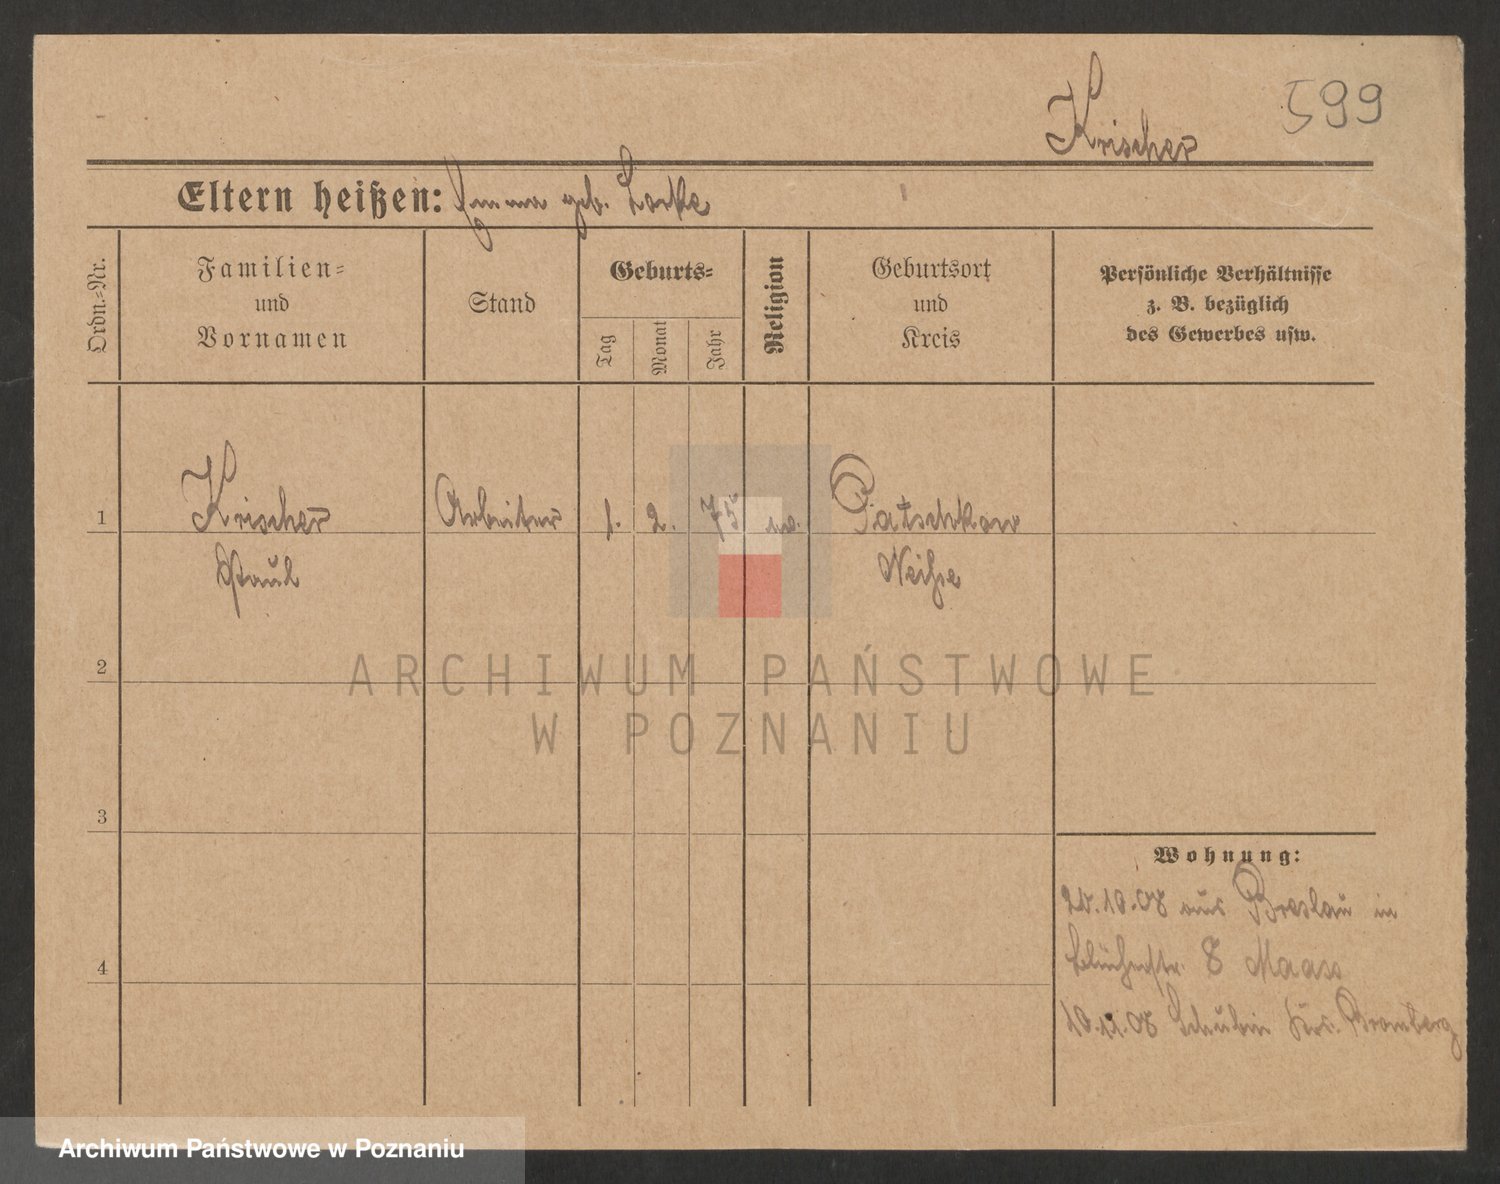 Krischer 599
Eltern heißen: Emma geb.
Ordn.-Nr.
Familien-
und
Vornamen
Stand
Geburts-
Tag
Monat
Jahr
Religion
Geburtsort
und
Kreis
Persönliche Verhältnisse
z. B. bezüglich
des Gewerbes usw.
1 Krischer Arbeiter 1. 2. 75 Patschkau
Paul Neiße
2
3
4
Wohnung:
20.10.08 aus Breslau in
Blücherstr. 8 Maass
10.11.08 Schubin Krs. Bromberg
ARCHIWUM PAŃSTWOWE
W POZNANIU
Archiwum Państwowe w Poznaniu